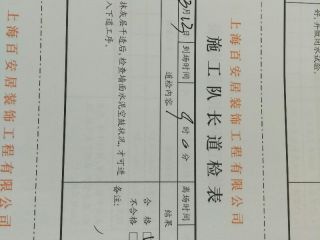 上海百安居装饰工程有限公司
施工队长道检表
3月12日 到场时间 9时0分 离场时间
道检内容 结果
抹灰层干透后，检查墙面水泥空鼓状况，才可进
入下道工序。
合 格
不合格
备注：
上海百安居装饰工程有限公司